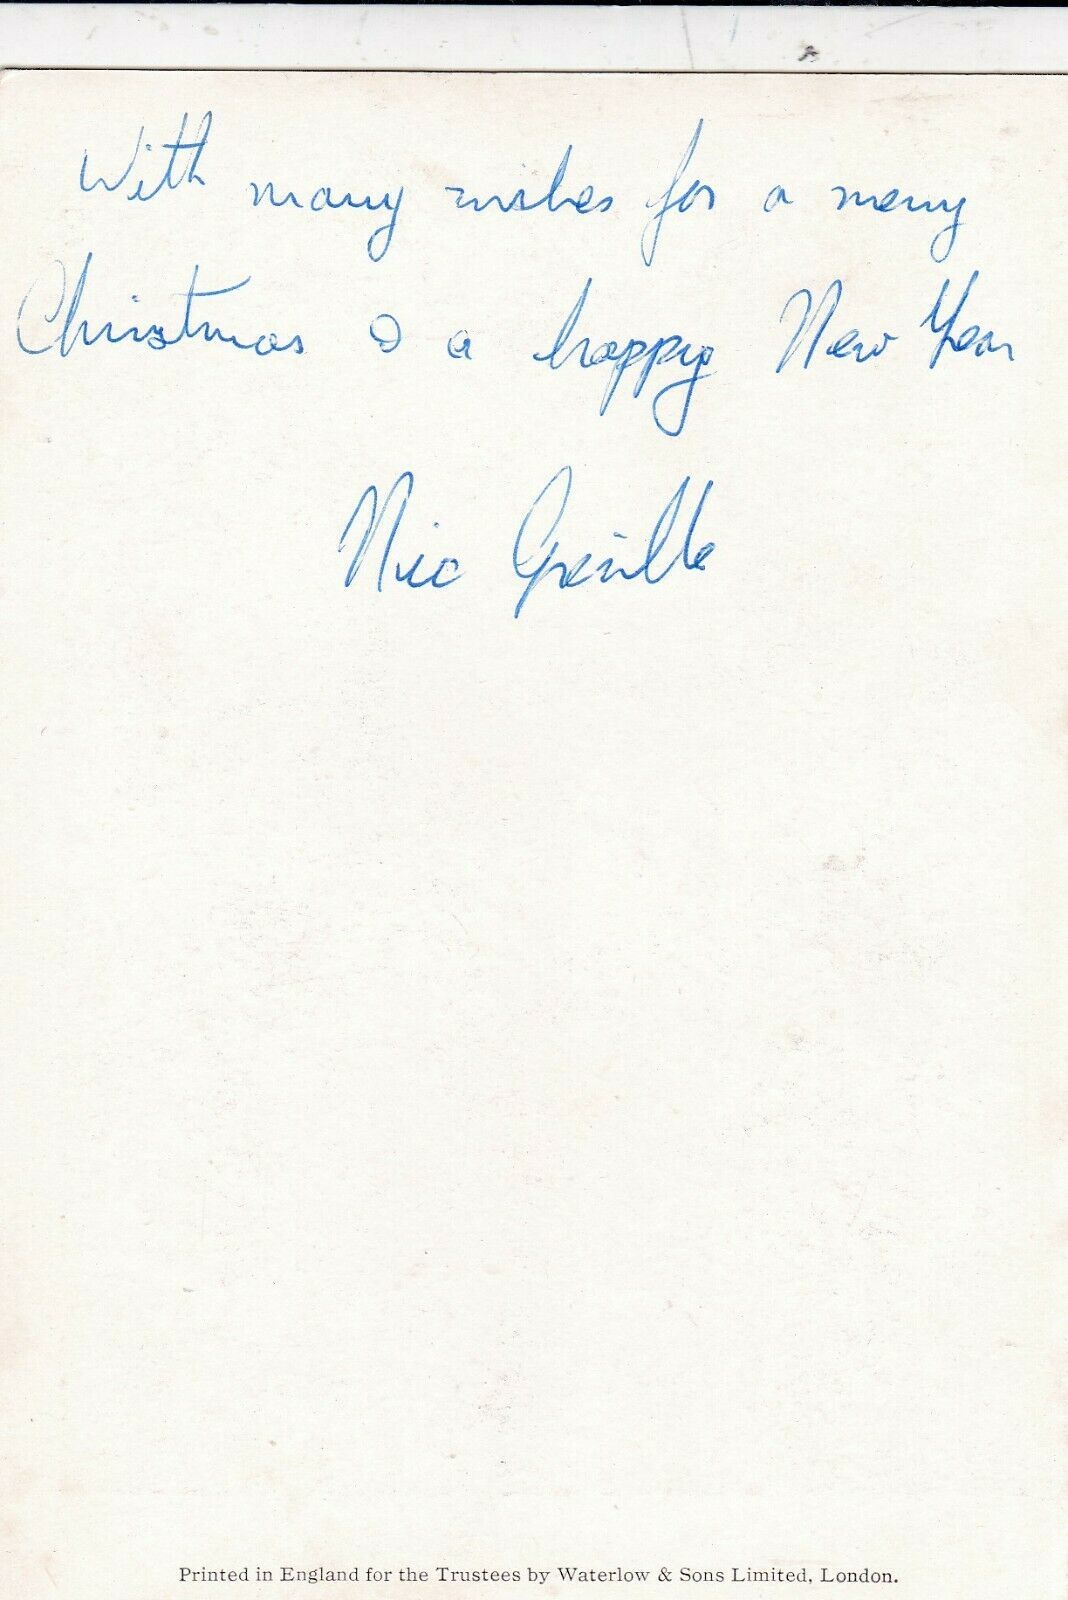 With many wishes for a merry
Christmas & a happy New Year
Nic Greville
Printed in England for the Trustees by Waterlow & Sons Limited, London.